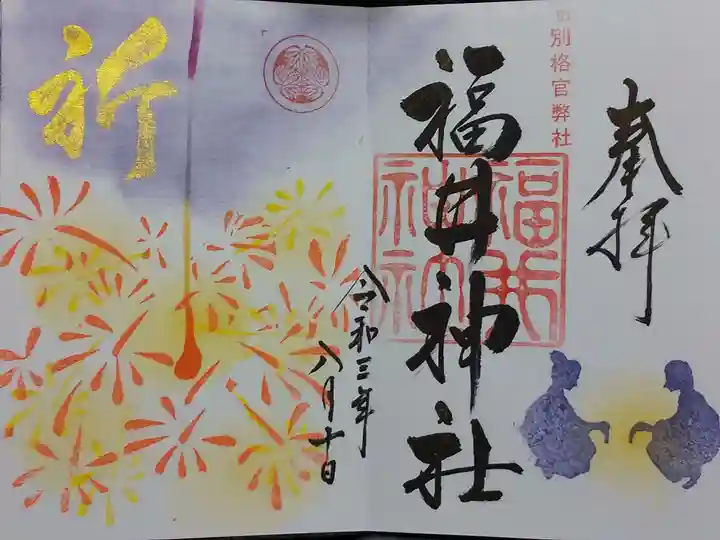 奉拝
別格官弊社
福井神社
福井神社
令和三年
八月十日
祈